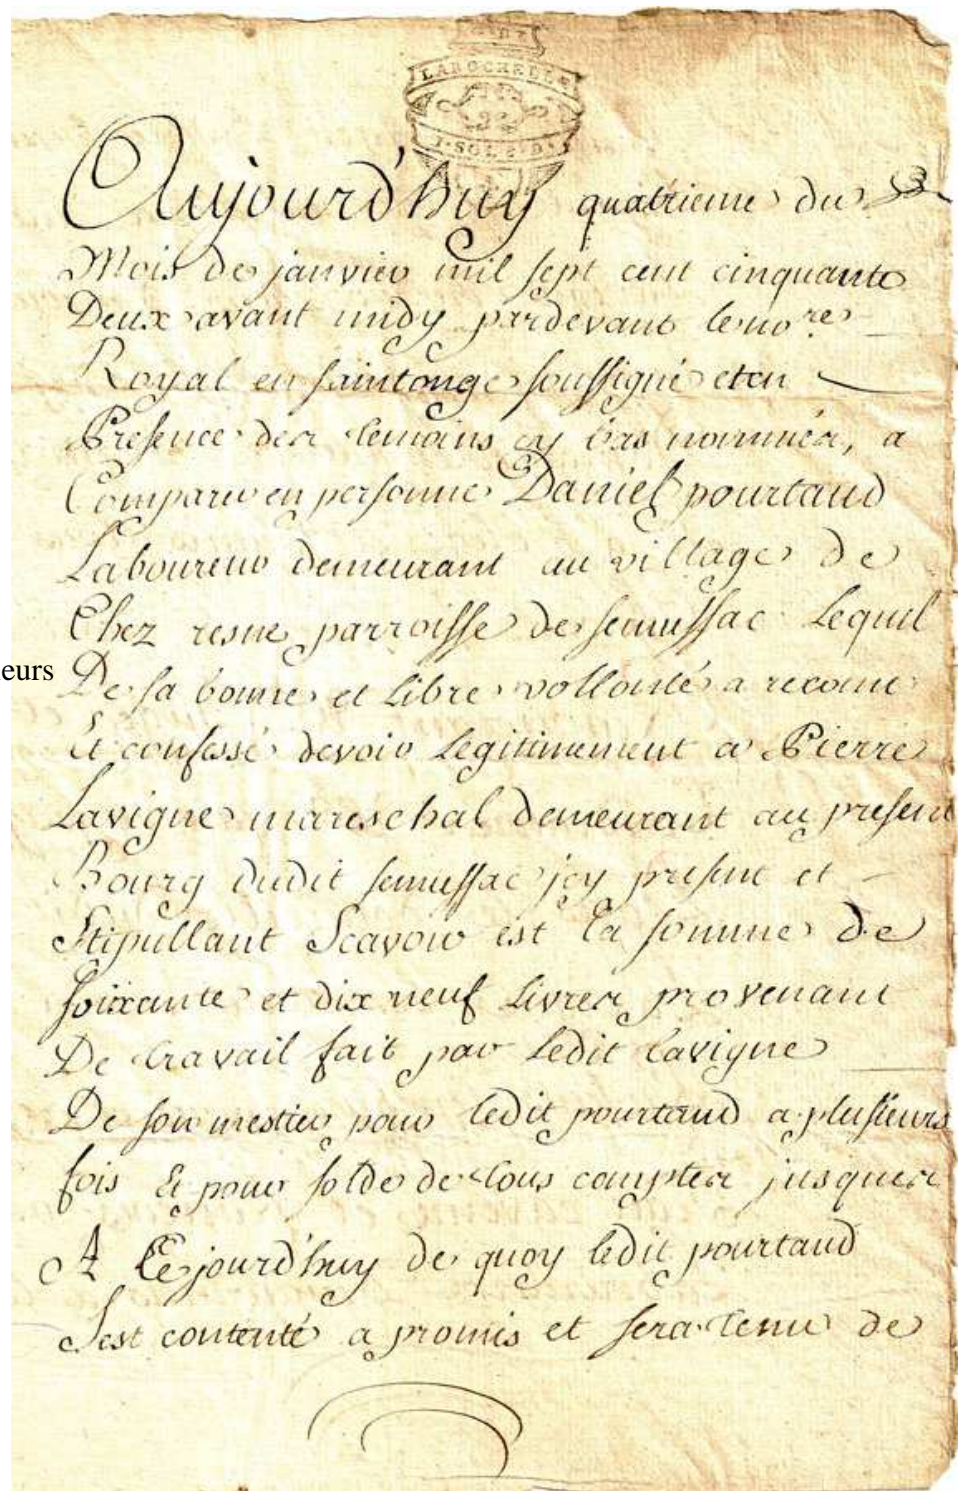 DE
LAROCHELLE
1·SOL 8·D·
Aujourd'huy quatrieme du
Mois de janvier mil sept cent cinquante
Deux avant midy pardevant le no.re
Royal en saintonge soussigné et en
Presence des temoins cy bas nommés, a
Comparu en personne Daniel pourtaud
Laboureur demeurant au village de
Chez resne parroisse de semussac Lequel
De sa bonne et libre vollonté a reconu
Et confessé devoir Legitimement a Pierre
Lavigne mareschal demeurant au present
Bourg dudit semussac jcy present et
Stipullant Scavoir est la somme de
soixante et dix neuf Livres provenant
De travail fait par Ledit Lavigne
De son mestier pour ledit pourtaud a plusieurs
fois Et pour solde de tous comptes jusques
A Cejourd'huy de quoy ledit pourtaud
Sest contenté a promis et sera tenu de
eurs